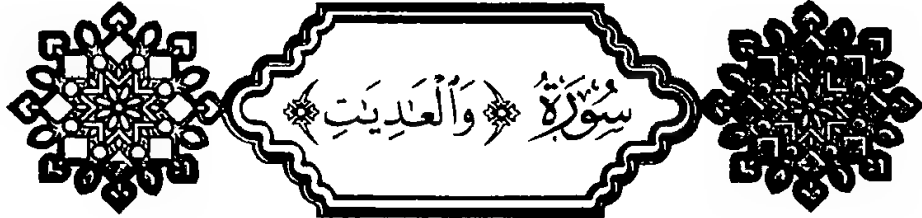 سُورَةُ ﴿وَٱلْعَٰدِيَٰتِ﴾